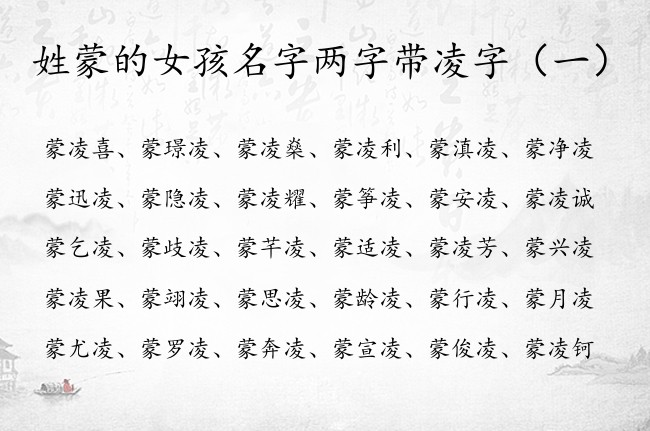 姓蒙的女孩名字两字带凌字（一）
蒙凌喜、蒙璟凌、蒙凌燊、蒙凌利、蒙滇凌、蒙净凌
蒙迅凌、蒙隐凌、蒙凌耀、蒙筝凌、蒙安凌、蒙凌诚
蒙乞凌、蒙歧凌、蒙芊凌、蒙适凌、蒙凌芳、蒙兴凌
蒙凌果、蒙翊凌、蒙思凌、蒙龄凌、蒙行凌、蒙月凌
蒙尤凌、蒙罗凌、蒙奔凌、蒙宣凌、蒙俊凌、蒙凌钶